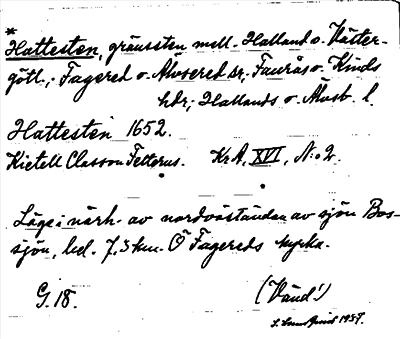 *
Hattesten, gränssten mell. Halland o. Väster-
götl.; Fagered o. Älvsered sr; Faurås o. Kinds
hdr; Hallands o. Älvsb. l.
Hattesten 1652.
Kietell Classon Felterus. KrA, XVI, N:o 2.
Låge i närh. av nordväständan av sjön Bos-
sjön, bel. 7,5 km. Ö Fagereds kyrka.
G. 18. (Vänd!)
1937.